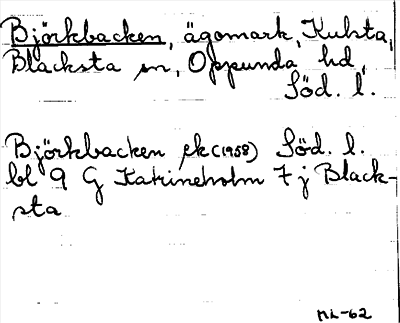 Björkbacken, ägomark, Kuhsta,
Blacksta sn, Oppunda hd,
Söd. l.
Björkbacken ek (1958) Söd. l.
bl 9 G Katrineholm 7 j Black-
sta
ML-62